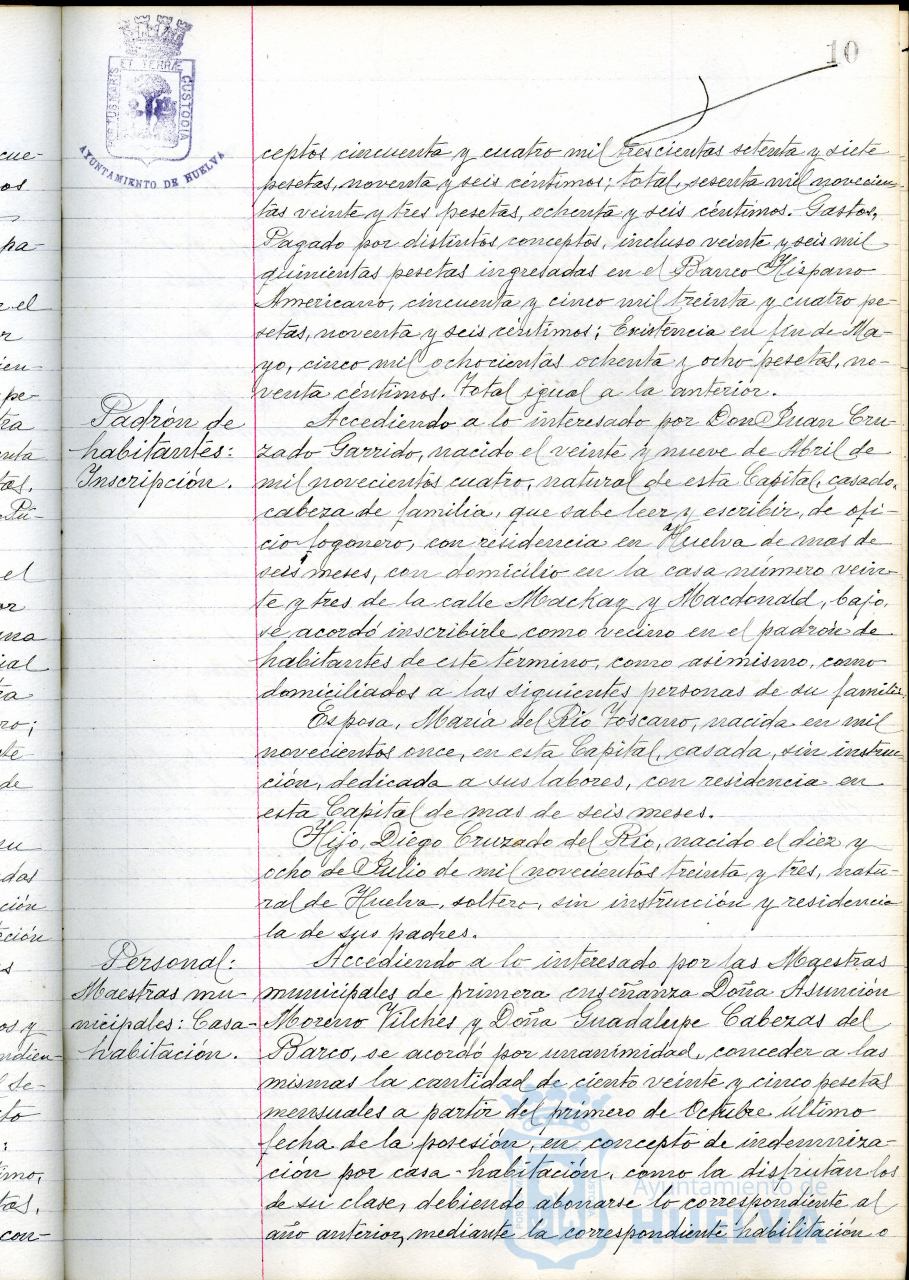 10
PORTUS MARIS ET TERRÆ CUSTODIA
AYUNTAMIENTO DE HUELVA
ceptos cincuenta y cuatro mil trescientas setenta y siete
pesetas, noventa y seis céntimos; total, sesenta mil novecien-
tas veinte y tres pesetas, ochenta y seis céntimos. Gastos,
Pagado por distintos conceptos, incluso veinte y seis mil
quinientas pesetas ingresadas en el Banco Hispano
Americano, cincuenta y cinco mil treinta y cuatro pe-
setas, noventa y seis céntimos; Existencia en fin de Ma-
yo, cinco mil ochocientas ochenta y ocho pesetas, no-
venta céntimos. Total igual a la anterior.
Padrón de
habitantes:
Inscripción.
Accediendo a lo interesado por Don Juan Cru-
zado Garrido, nacido el veinte y nueve de Abril de
mil novecientos cuatro, natural de esta Capital, casado,
cabeza de familia, que sabe leer y escribir, de ofi-
cio fogonero, con residencia en Huelva de mas de
seis meses, con domicilio en la casa número vein-
te y tres de la calle Mackay y Macdonald, bajo,
se acordó inscribirle como vecino en el padrón de
habitantes de este término, como asimismo, como
domiciliados a las siguientes personas de su familia
Esposa, María del Río Toscano, nacida en mil
novecientos once, en esta Capital, casada, sin instruc-
ción, dedicada a sus labores, con residencia en
esta Capital de mas de seis meses.
Hijo, Diego Cruzado del Río, nacido el diez y
ocho de Julio de mil novecientos treinta y tres, natu-
ral de Huelva, soltero, sin instrucción y residencia
la de sus padres.
Personal:
Maestras mu-
nicipales: Casa-
habitación.
Accediendo a lo interesado por las Maestras
municipales de primera enseñanza Doña Asunción
Moreno Vilches y Doña Guadalupe Cabezas del
Barco, se acordó por unanimidad, conceder a las
mismas la cantidad de ciento veinte y cinco pesetas
mensuales a partir del primero de Octubre último
fecha de la posesión, en concepto de indemniza-
ción por casa-habitación, como la disfrutan los
de su clase, debiendo abonarse lo correspondiente al
año anterior, mediante la correspondiente habilitación o
Ayuntamiento de
HUELVA